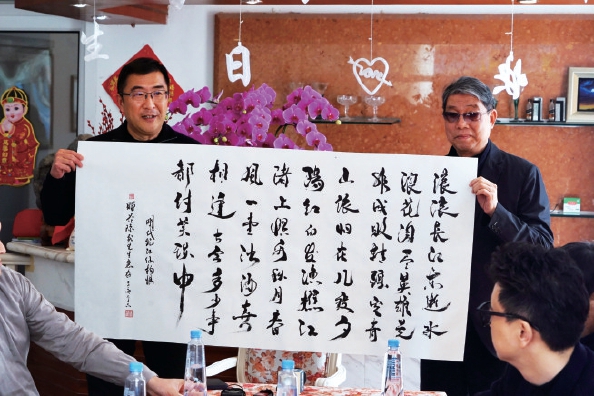 生
日
Love
滚滚长江东逝水
浪花淘尽英雄是
非成败转头空青
山依旧在几度夕
阳红白发渔樵江
渚上惯看秋月春
风一壶浊酒喜
相逢古今多少事
都付笑谈中